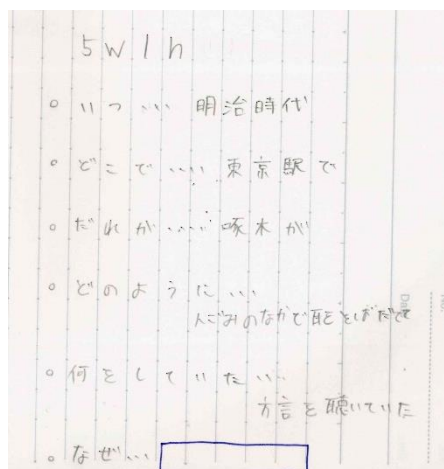 5w1h
○ いつ… 明治時代
○ どこで…. 東京駅で
○ だれが….. 啄木が
○ どのように…
人ごみのなかで耳をそばだてて
○ 何をしていた…
方言を聴いていた
○ なぜ…